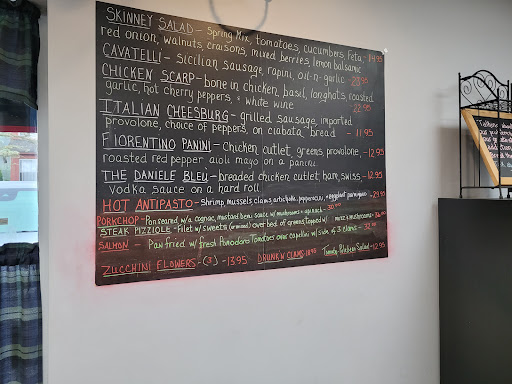 SKINNEY SALAD - Spring Mix, tomatoes, cucumbers, feta, - 14.95
red onion, walnuts, craisons, mixed berries, lemon balsamic
CAVATELLI - sicilian sausage, rapini, oil-n-garlic -
CHICKEN SCARP - bone in chicken, basil, longhots, roasted
garlic, hot cherry peppers, + white wine 22.95
ITALIAN CHEESBURG - grilled sausage, imported
provolone, choice of peppers, on ciabata bread - 11.95
FIORENTINO PANINI - Chicken cutlet greens, provolone, - 12.95
roasted red pepper aioli mayo on a panini
THE DANIELE BLEU - breaded chicken cutlet, ham, swiss, - 12.95
vodka sauce on a hard roll
HOT ANTIPASTO - Shrimp, mussels, clams, artichoke, pepperoncini, + eggplant parmigiano
PORKCHOP - Pan seared, w/a cognac, mustard beni sauce w/ mushrooms + spinach -
STEAK PIZZIOLE - Filet w/ sweets over bed of greens, topped w/ mozz + mushrooms -
SALMON - Pan fried w/ fresh Pomodoro Tomatoes over capellini w/ side of 3 clams -
ZUCCHINI FLOWERS - (3) - 13.95 DRUNK'N CLAMS Salad - 12.95